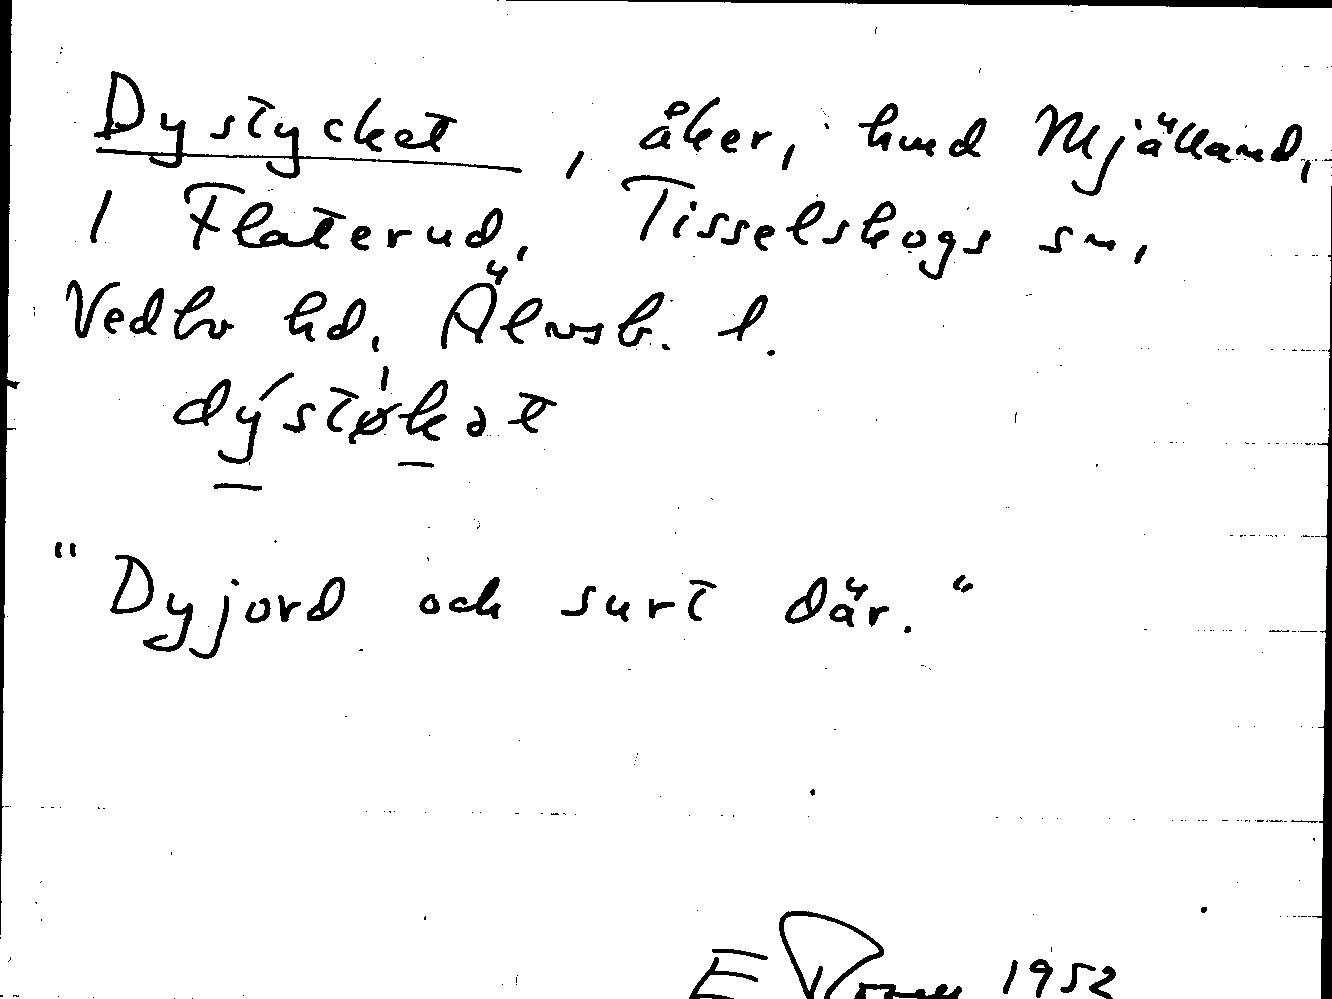 Dystycket, åker, hmd Mjälland,
1 Flaterud, Tisselskogs sn,
Vedbo hd, Älvsb. l.
dýstø̀kət
"Dyjord och surt där."
E 1952